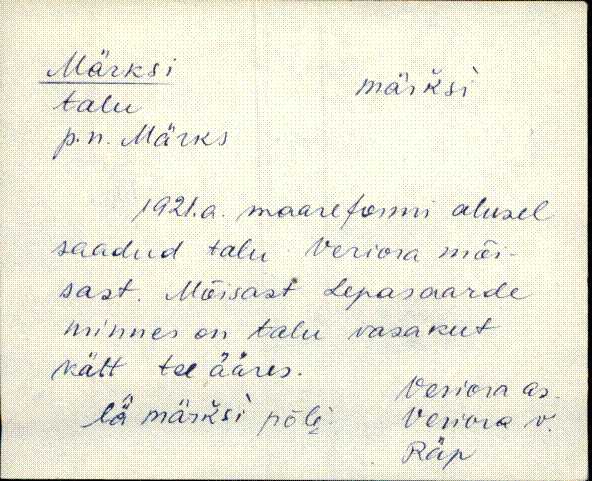 Märksi
märk̆sì
talu
p.n. Märks
1921.a. maareformi alusel
saadud talu Veriora mõi-
sast. Mõisast Lepasaarde
minnes on talu vasakut
kätt tee ääres.
lä märk̆sì põle
Veriora as.
Veriora v.
Räp